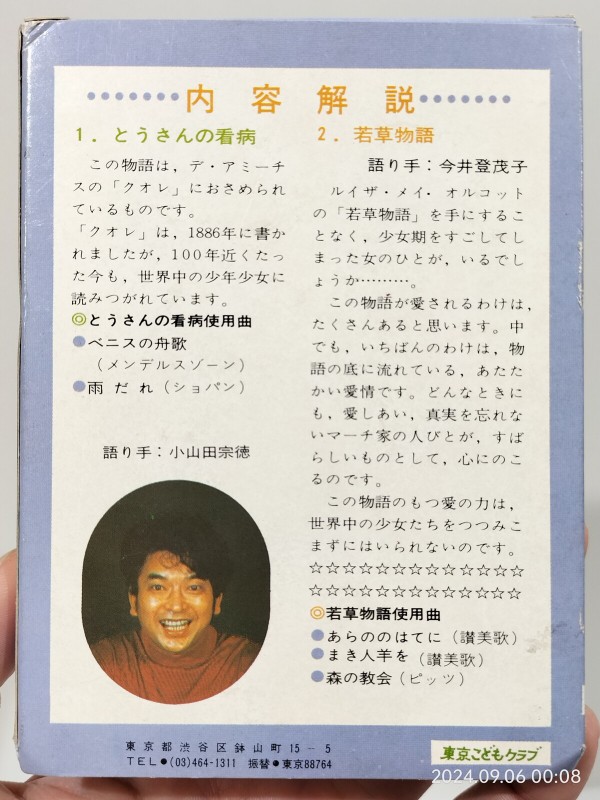 ●●●●●●●内容解説●●●●●●●
1．とうさんの看病
この物語は，デ・アミーチ
スの「クオレ」におさめられ
ているものです。
「クオレ」は，1886年に書か
れましたが，100年近くたっ
た今も，世界中の少年少女に
読みつがれています。
◎とうさんの看病使用曲
●ベニスの舟歌
（メンデルスゾーン）
●雨だれ（ショパン）
語り手：小山田宗徳
2．若草物語
語り手：今井登茂子
ルイザ・メイ・オルコット
の「若草物語」を手にするこ
となく，少女期をすごしてし
まった女のひとが，いるでし
ょうか………。
この物語が愛されるわけは，
たくさんあると思います。中
でも，いちばんのわけは，物
語の底に流れている，あたた
かい愛情です。どんなときに
も，愛しあい，真実を忘れな
いマーチ家の人びとが，すば
らしいものとして，心にのこ
るのです。
この物語のもつ愛の力は，
世界中の少女たちをつつみこ
まずにはいられないのです。
☆☆☆☆☆☆☆☆☆☆☆☆☆
☆☆☆☆☆☆☆☆☆☆☆☆☆
◎若草物語使用曲
●あらののはてに（讃美歌）
●まき人羊を（讃美歌）
●森の教会（ピッツ）
東京都渋谷区鉢山町15－5
TEL●(03)464-1311 振替●東京88764
東京こどもクラブ
2024.09.06 00:08